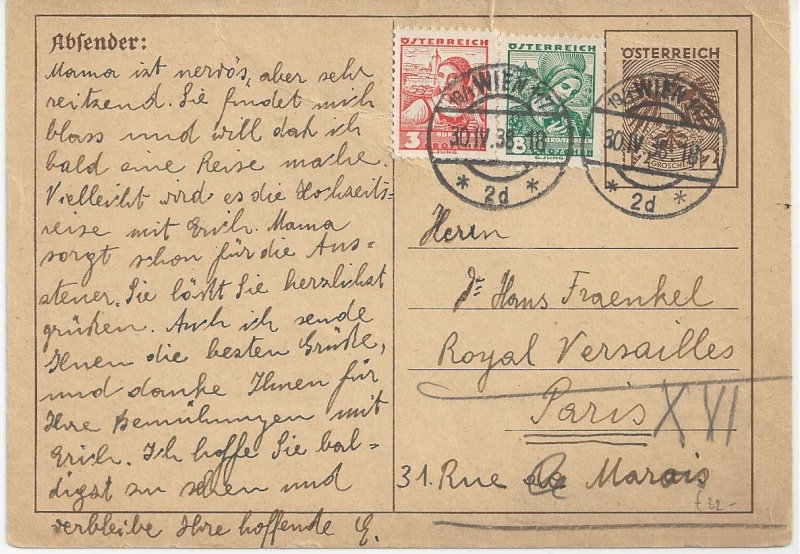 Absender:
Mama ist nervös, aber sehr
reitzend. Sie findet mich
blass und will dah ich
bald eine Reise mache.
Vielleicht wird es die Hochzeits-
reise mit Erich. Mama
sorgt schon für die Aus-
steuer. Sie läßt Sie herzlichst
grüßen. Auch ich sende
Ihnen die besten Grüße,
und danke Ihnen für
Ihre Bemühungen mit
Erich. Ich hoffe Sie bal-
digst zu sehen und
verbleibe Ihre hoffende E.
ÖSTERREICH
3
JUNG
ÖSTERREICH
8
ÖSTERREICH
GROSCHEN
WIEN
30.IV.38 18
* 2d *
WIEN
30.IV.38 18
* 2d *
Herrn
Dr. Hans Fraenkel
Royal Versailles
Paris XVI
31. Rue Marois
f 32-